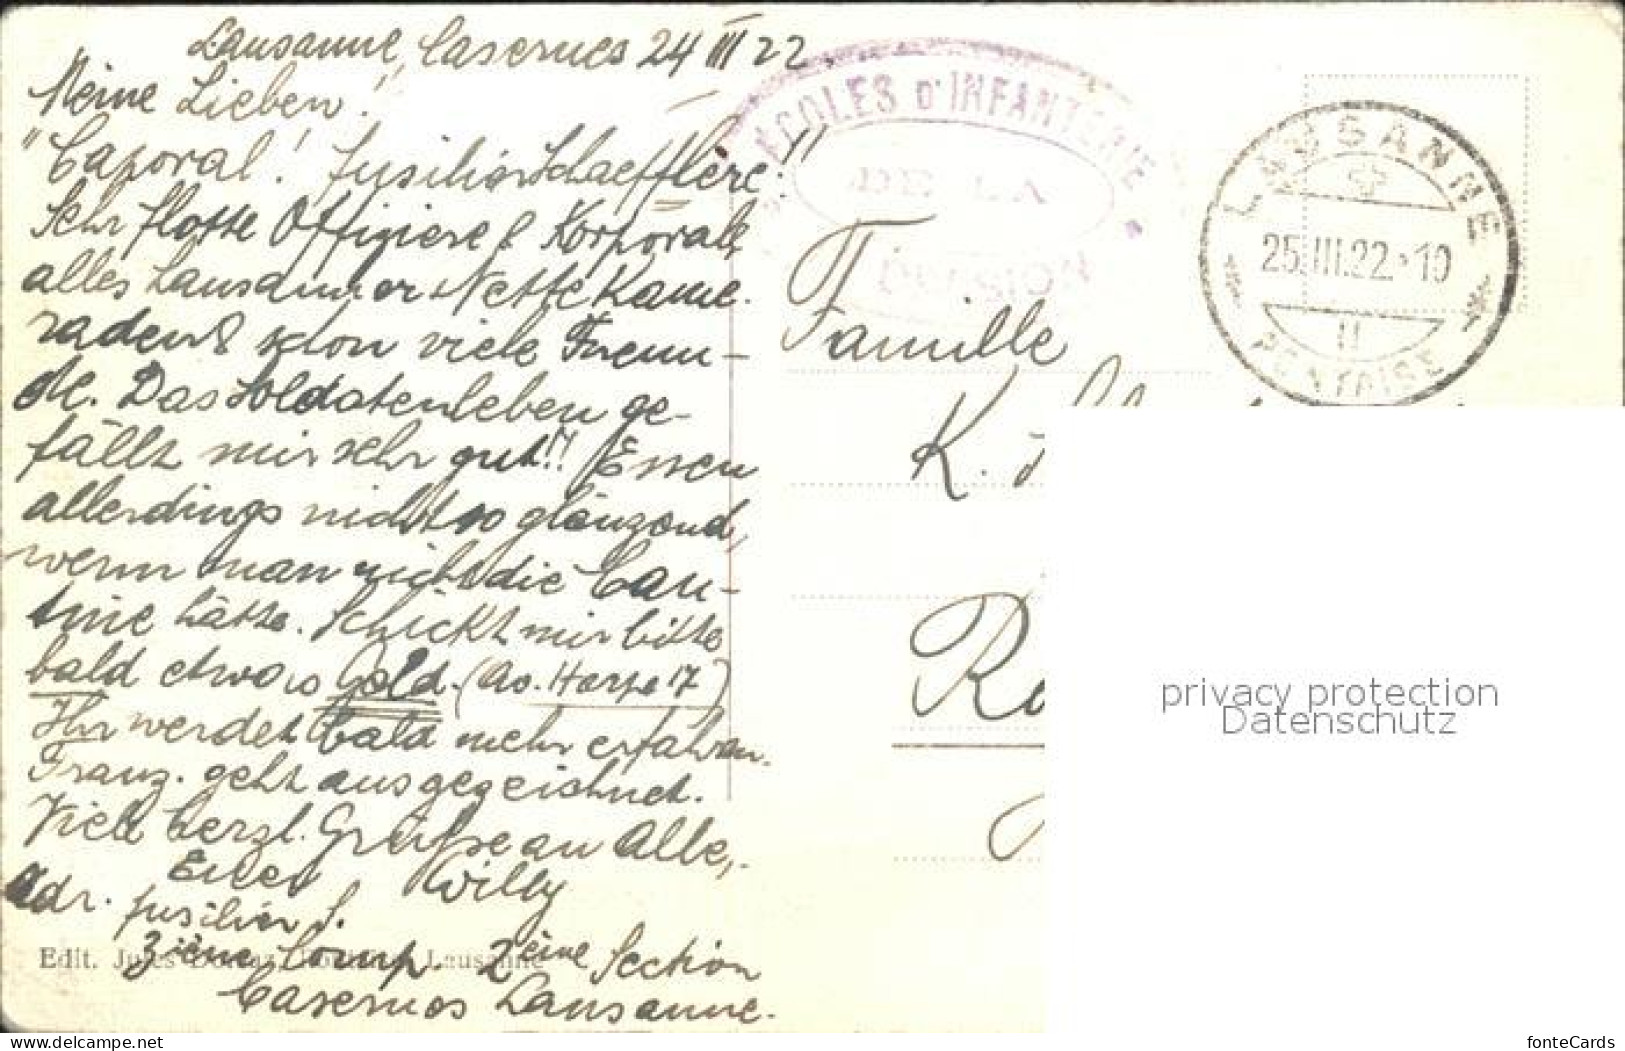 Lausanne, Casernes 24 III 22
Meine Lieben!
"Caporal! fusilier Schaefflère!"
Sehr flotte Offiziere & Korporale,
alles Lausanner Nette Kame-
raden & schon viele Freun-
de. Das Soldatenleben ge-
fällt mir sehr gut!! Essen
allerdings nicht so glänzend,
wenn man nicht die Can-
tine hätte. Schickt mir bitte
bald etwas Geld. (Av. Harpe 17)
Ihr werdet bald mehr erfahren.
Franz. geht ausgezeichnet.
Viele herzl. Grüsse an Alle,
Euer Willy
Adr. fusilier S.
3ième Comp. 2ème Section
Casernes Lausanne.
Edit. Jules Lausanne
ÉCOLES D'INFANTERIE
DE LA
DIVISION
LAUSANNE
25.III.22.-10
II
PONTAISE
Famille
K.
privacy protection
Datenschutz
www.delcampe.net
fonteCards